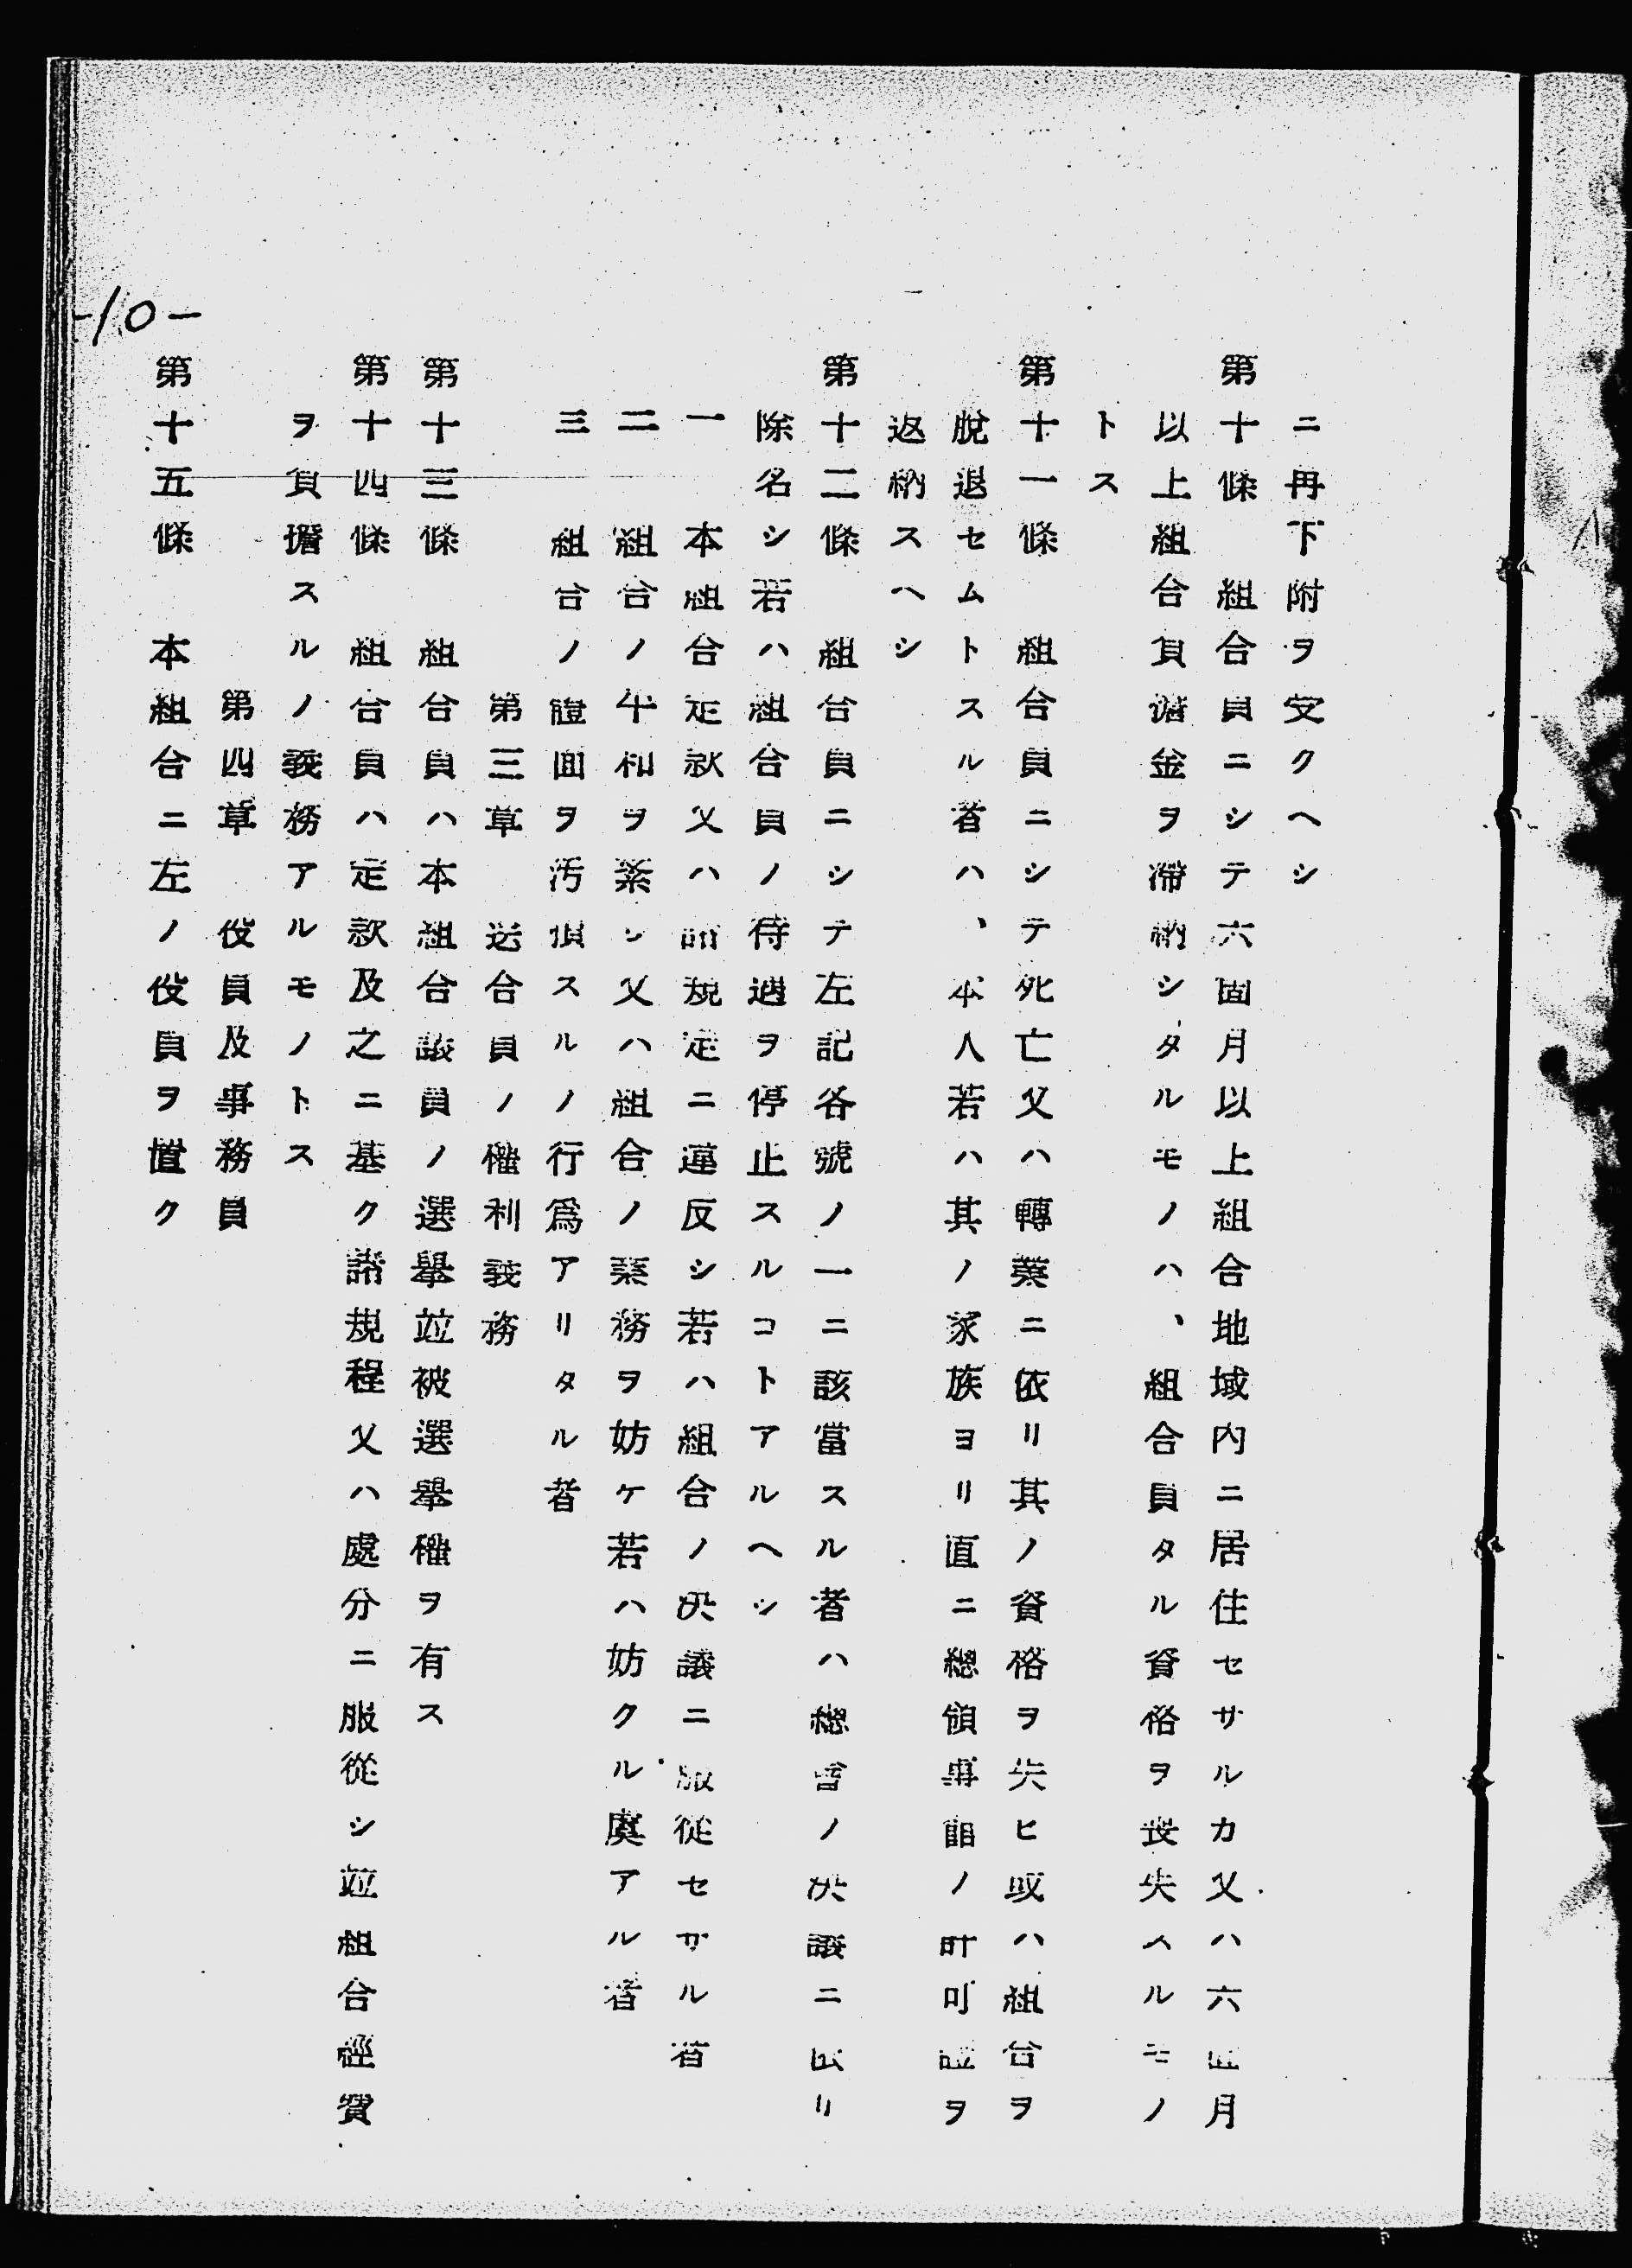 ニ再下附ヲ受クヘシ
第十條 組合員ニシテ六箇月以上組合地域內ニ居住セサルカ又ハ六箇月
以上組合負擔金ヲ滯納シタルモノハ、組合員タル資格ヲ喪失スルモノ
トス
第十一條 組合員ニシテ死亡又ハ轉業ニ依リ其ノ資格ヲ失ヒ或ハ組合ヲ
脫退セムトスル者ハ、本人若ハ其ノ家族ヨリ直ニ總領事館ノ許可證ヲ
返納スヘシ
第十二條 組合員ニシテ左記各號ノ一ニ該當スル者ハ總會ノ決議ニ因リ
除名シ若ハ組合員ノ待遇ヲ停止スルコトアルヘシ
一 本組合定款又ハ諸規定ニ違反シ若ハ組合ノ決議ニ服從セサル者
二 組合ノ平和ヲ紊シ又ハ組合ノ業務ヲ妨ケ若ハ妨クル虞アル者
三 組合ノ體面ヲ汚損スルノ行爲アリタル者
第三章 組合員ノ權利義務
第十三條 組合員ハ本組合議員ノ選擧竝被選擧權ヲ有ス
第十四條 組合員ハ定款及之ニ基ク諸規程又ハ處分ニ服從シ竝組合經費
ヲ負擔スルノ義務アルモノトス
第四章 役員及事務員
第十五條 本組合ニ左ノ役員ヲ置ク
-10-